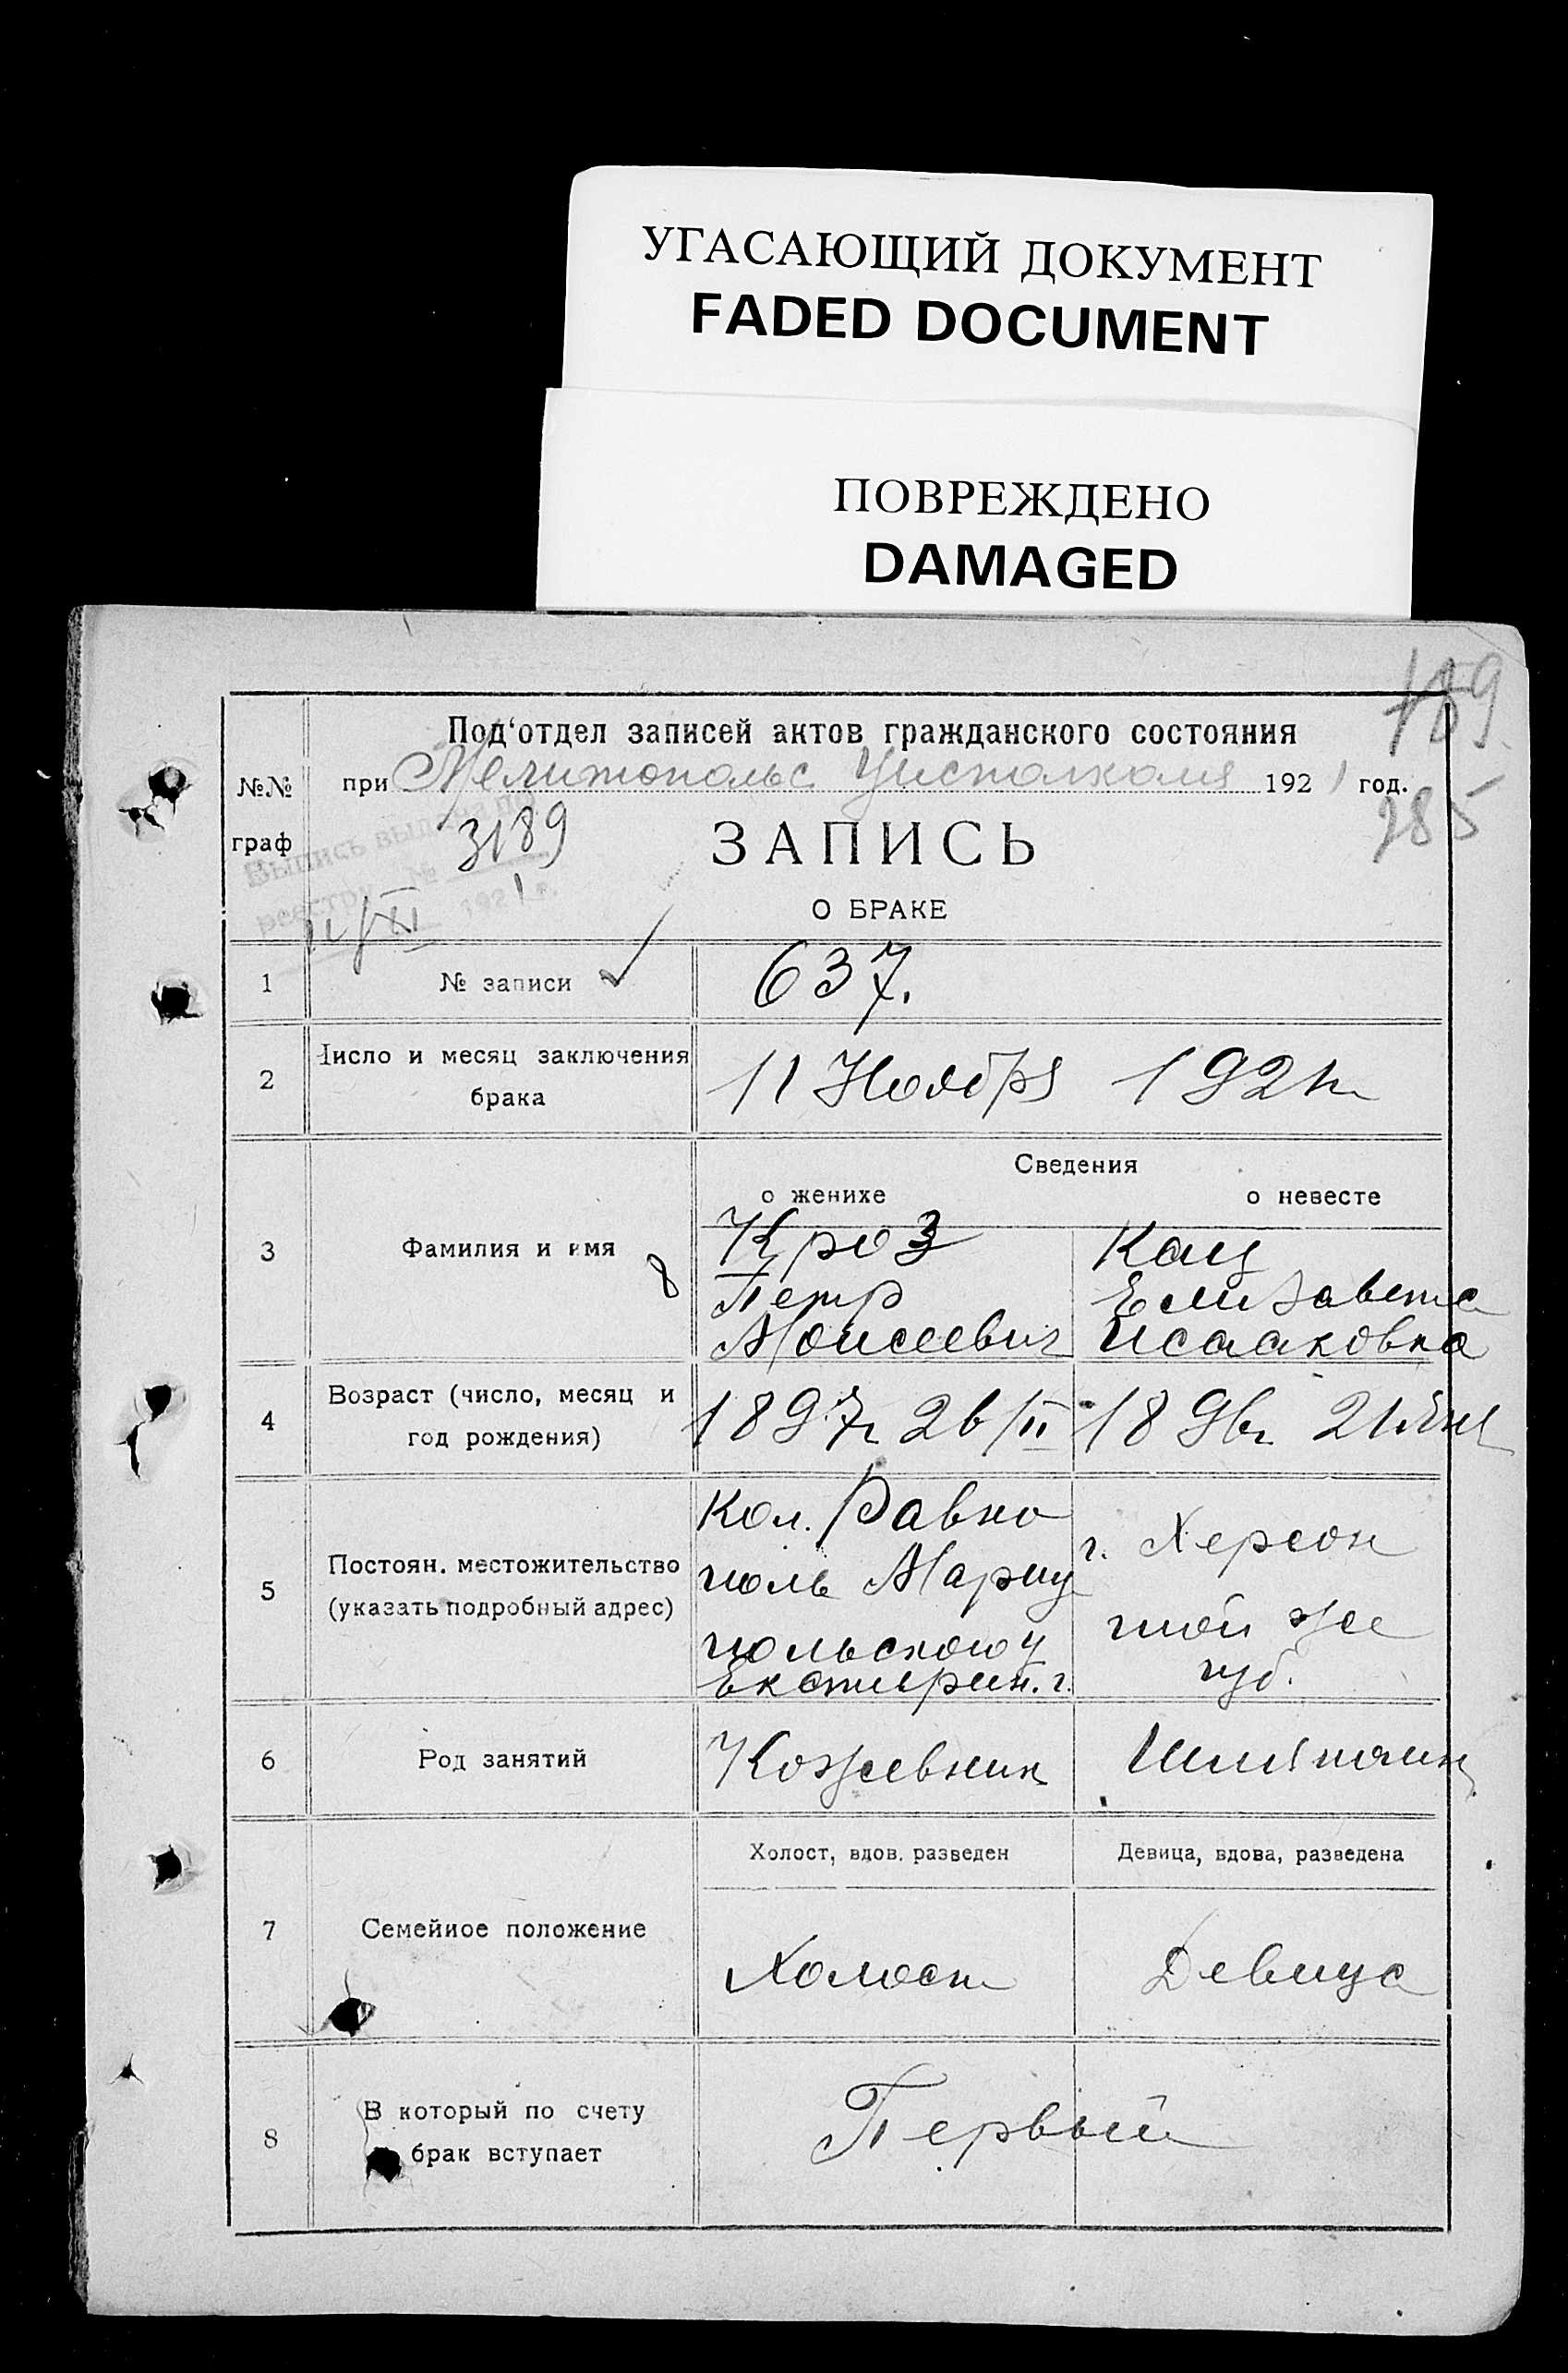 УГАСАЮЩИЙ ДОКУМЕНТ
FADED DOCUMENT
ПОВРЕЖДЕНО
DAMAGED
189
285
Под'отдел записей актов гражданского состояния
№№ граф
при Мелитопольс. Уисполкоме 1921 год.
Выпись выдана по
реестру № 3189
11/XI 1921 г.
ЗАПИСЬ
О БРАКЕ
1 № записи 637.
2 Число и месяц заключения брака 11 Ноября 1921 г.
Сведения
о женихе о невесте
3 Фамилия и имя 8
Кроз
Петр
Моисеевич
Кац
Елизавета
Исааковна
4 Возраст (число, месяц и год рождения)
1897 г. 26/II
1896 г. 21 Янв
5 Постоян. местожительство (указать подробный адрес)
Кол. Равно
поль Мариу
польского у
Екатерин. г.
г. Херсон
той же
губ.
6 Род занятий
Кожевник
7 Семейное положение
Холост, вдов. разведен
Девица, вдова, разведена
Холост
Девица
8 В который по счету брак вступает
Первый